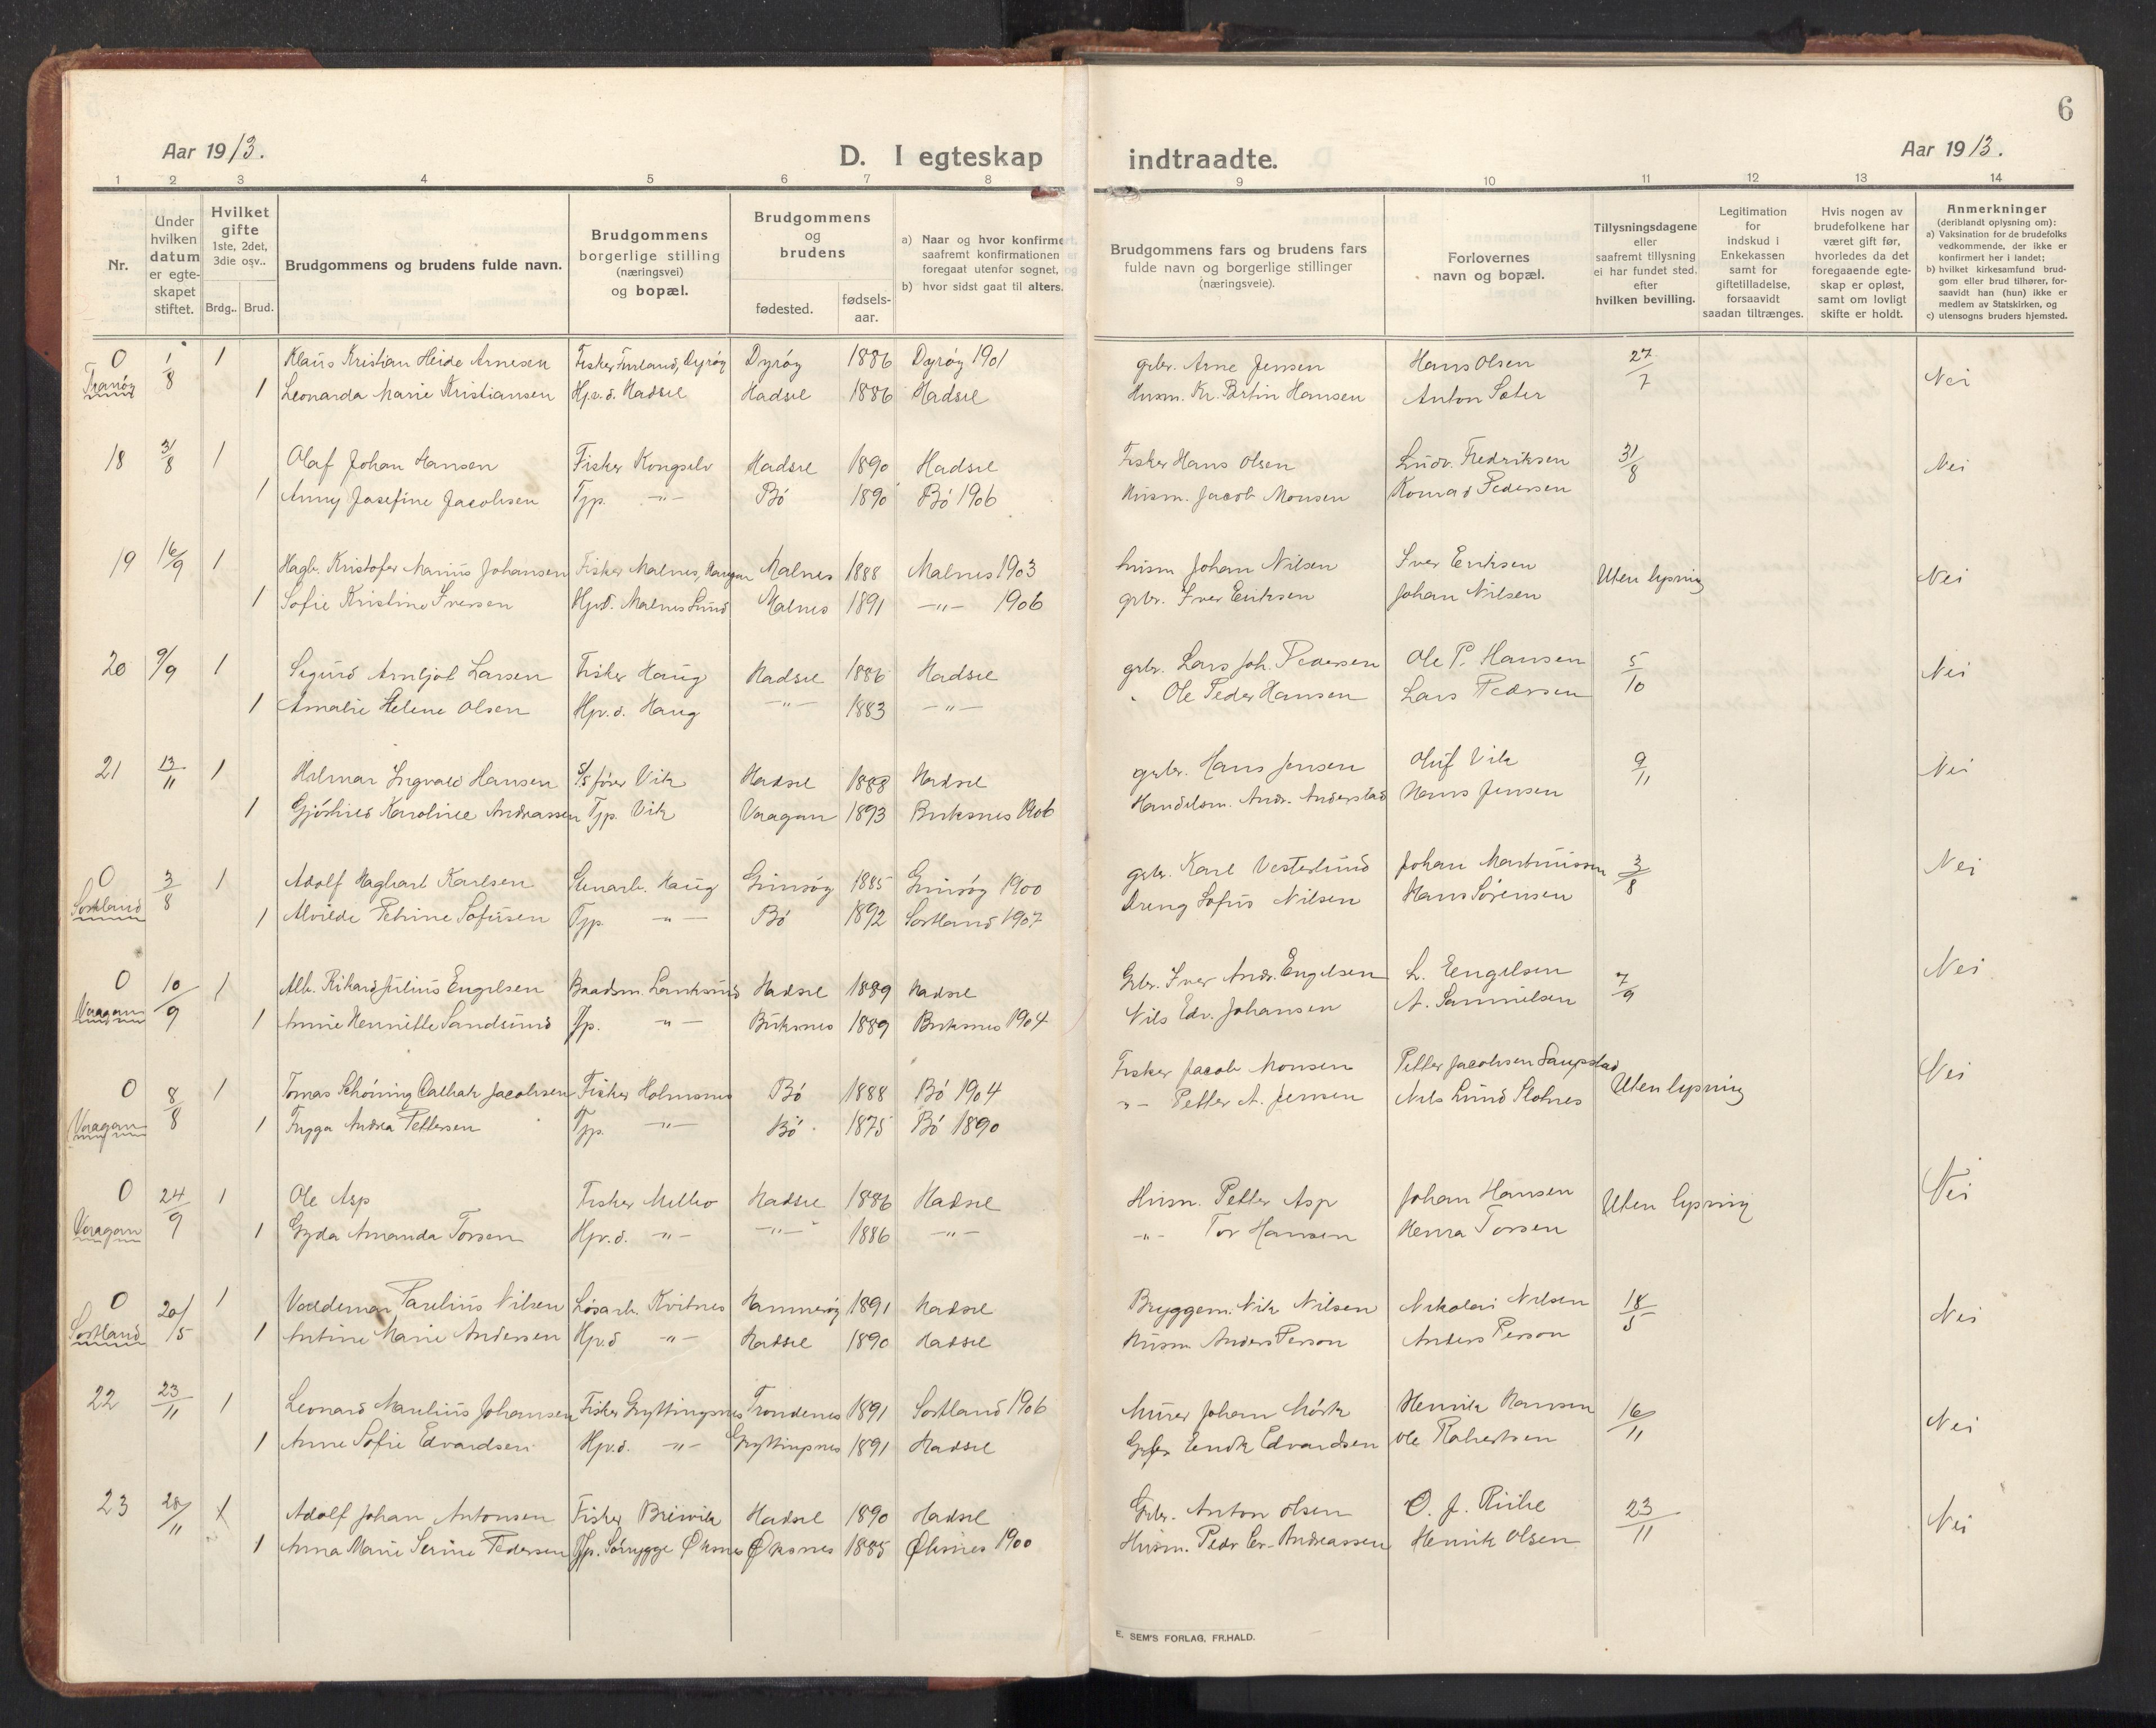 6
Aar 1913.
D. I egteskap indtraadte.
Aar 1913.
1 2 3 4 5 6 7 8 9 10 11 12 13 14
Nr.
Under hvilken datum er egteskapet stiftet.
Hvilket gifte 1ste, 2det, 3die osv..
Brdg.. Brud.
Brudgommens og brudens fulde navn.
Brudgommens borgerlige stilling (næringsvei) og bopæl.
Brudgommens og brudens
fødested. fødsels-aar.
a) Naar og hvor konfirmert, saafremt konfirmationen er foregaat utenfor sognet, og
b) hvor sidst gaat til alters.
Brudgommens fars og brudens fars fulde navn og borgerlige stillinger (næringsveie).
Forlovernes navn og bopæl.
Tillysningsdagene eller saafremt tillysning ei har fundet sted, efter hvilken bevilling.
Legitimation for indskud i Enkekassen samt for giftetilladelse, forsaavidt saadan tiltrænges.
Hvis nogen av brudefolkene har været gift før, hvorledes da det foregaaende egteskap er opløst, samt om lovligt skifte er holdt.
Anmerkninger
(deriblandt oplysning om):
a) Vaksination for de brudefolks vedkommende, der ikke er konfirmert her i landet;
b) hvilket kirkesamfund brudgom eller brud tilhører, forsaavidt han (hun) ikke er medlem av Statskirken, og
c) utensogns bruders hjemsted.
0 1/8 1 Klaus Kristian Heide Arnesen Fisker Finland, Dyrøy Dyrøy 1886 Dyrøy 1901 grbr. Arne Jensen Hans Olsen 27/7 Nei
Tranøy 1 Leonarda Marie Kristiansen Hp.v.d. Hadsel Hadsel 1886 Hadsel Husm. Kr. Bertin Hansen Anton Sæter
18 31/8 1 Olaf Johan Hansen Fisker Kongselv Hadsel 1890 Hadsel Fisker Hans Olsen Ludv. Fredriksen 31/8 Nei
1 Anny Josefine Jacobsen Tjp. -"- Bø 1890 Bø 1906 Husm. Jacob Monsen Konrad Pedersen
19 16/9 1 Hagb. Kristofer Marius Johansen Fisker Malnes, Malnes 1888 Malnes 1903 husm Johan Nilsen Iver Eriksen Uten lysning Nei
1 Sofie Kristine Iversen Hpvd. Malnes Sund Malnes 1891 -"- 1906 grbr. Iver Eriksen Johan Nilsen
20 9/9 1 Sigurd Arnljot Larsen Fisker Haug Hadsel 1886 Hadsel grbr. Lars Joh. Pedersen Ole P. Hansen 5/10 Nei
1 Amalie Helene Olsen Hp.v.d. Haug -"- 1883 -"- " Ole Peder Hansen Lars Pedersen
21 13/11 1 Hilmar Ingvald Hansen S/S fører Vik Hadsel 1888 Hadsel grbr. Hans Jensen Oluf Vik 9/11 Nei
1 Gjørhild Karoline Andreassen Tjp. Vik Vaagan 1893 Buksnes 1906 Handelsm. Andr. Anderstad Hans Jensen
0 3/8 1 Adolf Hagbart Karlsen Stenarb. Haug Gimsøy 1885 Gimsøy 1900 grbr. Karl Vesterlund Johan Martinussen 3/8 Nei
Sortland 1 Alvilde Petrine Sofusen Tjp. -"- Bø 1892 Sortland 1907 Dreng Sofus Nilsen Hans Sørensen
0 10/9 1 Alb. Rikard Julius Engelsen Baadsm. Lauksund Hadsel 1889 Hadsel Grbr. Iver Andr. Engelsen L. Eengelsen 7/9 Nei
Vaagan 1 Anne Henriette Sandsund Tjp. -"- Buksnes 1889 Buksnes 1904 Nils Edv. Johansen A. Samuelsen
0 8/8 1 Tomas Schøning Dalhak Jacobsen Fisker Holmsnes Bø 1888 Bø 1904 Fisker Jacob Monsen Petter Jacobsen Saupstad Uten lysning Nei
Vaagan 1 Frygga Andrea Pettersen Tjp. -"- Bø 1875 Bø 1890 -"- Petter A. Jensen Nils Lund Slotnes
0 24/9 1 Ole Asp Fisker Melbo Hadsel 1886 Hadsel Husm. Petter Asp Johan Hansen Uten lysning Nei
Vaagan 1 Gyda Amanda Torsen Hp.v.d. -"- -"- 1886 -"- -"- Tor Hansen Henra Torsen
0 20/5 1 Valdemar Parelius Nilsen Løsarb. Kvitnes Hammerøy 1891 Hadsel Bryggem. Nik Nilsen Nikolai Nilsen 18/5 Nei
Sortland 1 Antine Marie Andersen Hp.v.d -"- Hadsel 1890 Hadsel Husm. Anders Person Anders Person
22 23/11 1 Leonard Marelius Johansen Fisker Gryttingsnes Trondenes 1891 Sortland 1906 Murer Johan Mørk Henrik Hansen 16/11 Nei
1 Anne Sofie Edvardsen Hp.v.d. -"- Gryttingsnes 1891 Hadsel Grbr Enok Edvardsen Ole Robertsen
23 28/11 1 Adolf Johan Antonsen Fisker Breivik Hadsel 1890 Hadsel Grbr. Anton Olsen O. J. Riise 23/11 Nei
1 Anna Marie Serine Pedersen Tjp. Øksnes Øksnes 1885 Øksnes 1900 Husm. Pedr Er. Andreassen Henrik Olsen
E. SEM'S FORLAG, FR.HALD.